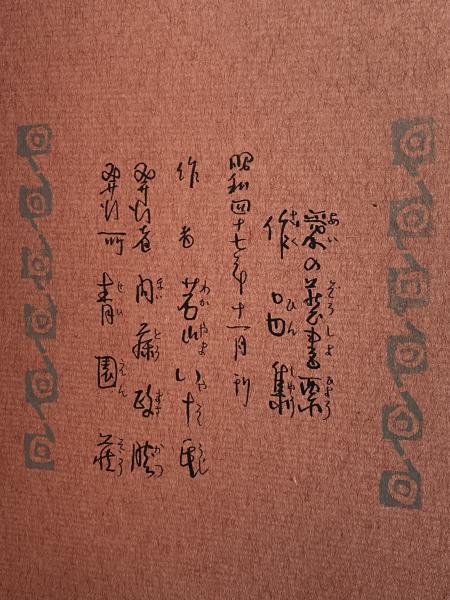 愛の蔵書票
作品集
昭和四十七年十一月刊
作者 若山八十氏
発行者 内藤政勝
発行所 青園荘